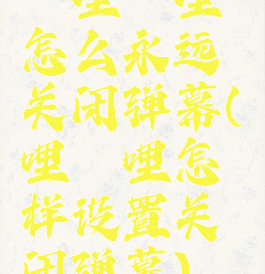 哩 哩
怎么永远
关闭弹幕(
哩 哩怎
样设置关
闭弹幕)